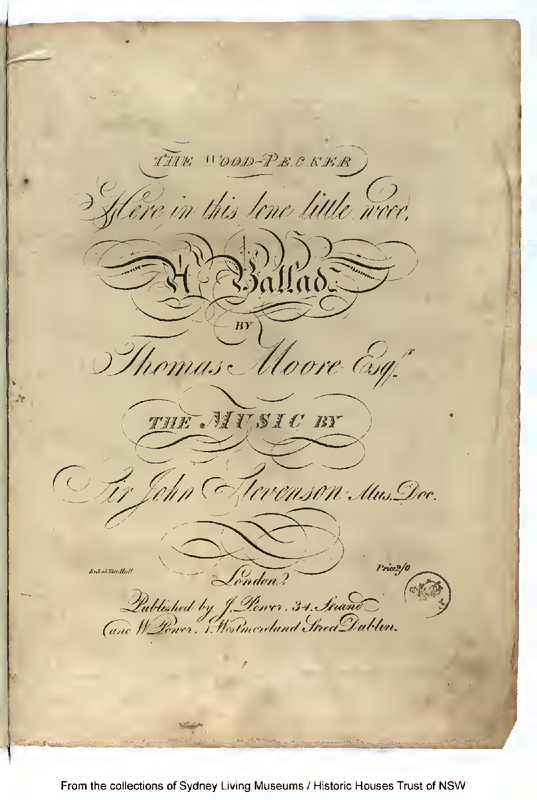 THE WOOD-PECKER
Here, in this lone little wood,
A Ballad
BY
Thomas Moore Esqr.
THE MUSIC BY
Sir John Stevenson Mus. Doc.
Ent. at Sta. Hall
Price 2/0
London,
Published by J. Power. 34. Strand
and W. Power. 4. Westmoreland Street Dublin.
From the collections of Sydney Living Museums / Historic Houses Trust of NSW